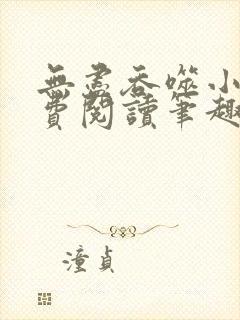 無盡吞噬小
費閱讀筆趣
潼貞